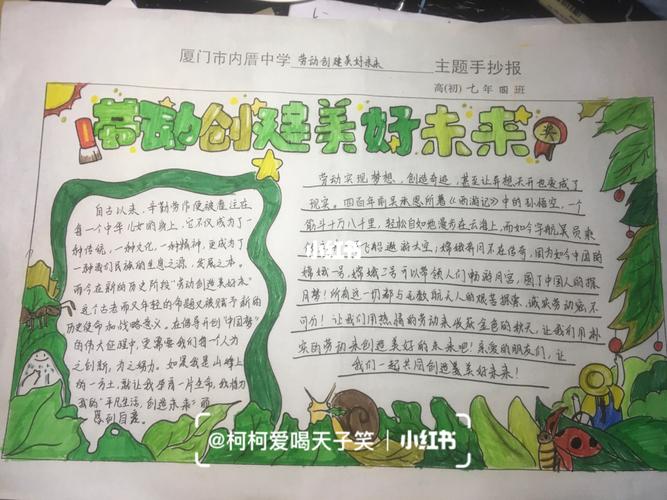 厦门市内厝中学 劳动创建美好未来 主题手抄报
高(初) 七 年 四 班
劳动创建美好未来
奖
自古以来，辛勤劳作便被灌注在
每一个中华儿女的身上，它不仅成为了一
种传统，一种文化，一种精神，更成为了
一种我们民族的生息之源，发展之本。
而今在新的历史阶段"劳动创造美好未来"
这个古老而又年轻的命题又被赋予新的
历史使命和战略意义。在倡导开创"中国梦"
的伟大征程中，更需要我们每一个人为
之创新，为之努力。如果我是山峰上
的一方土，就让我孕育一片生命，我情
我的"平凡生活，创造未来"
劳动实现梦想，创造奇迹，甚至让异想天开也变成了
现实，四百年前吴承恩所著《西游记》中的孙悟空，一个
筋斗十万八千里，轻松自如地漫步在云海上，而如今宇航员乘
飞船遨游太空；嫦娥奔月不在传奇，因为如今中国的
嫦娥一号，嫦娥二号可以带领人们畅游月宫，圆了中国人的探
月梦！所有这一切都与无数航天人的艰苦探索，诚实劳动密不
可分！让我们用热情的劳动来收获金色的秋天，让我们用朴
实的劳动来创造美好的未来吧！亲爱的朋友们，让
我们一起共同创造美美好未来！
小红书
@柯柯爱喝天子笑 小红书